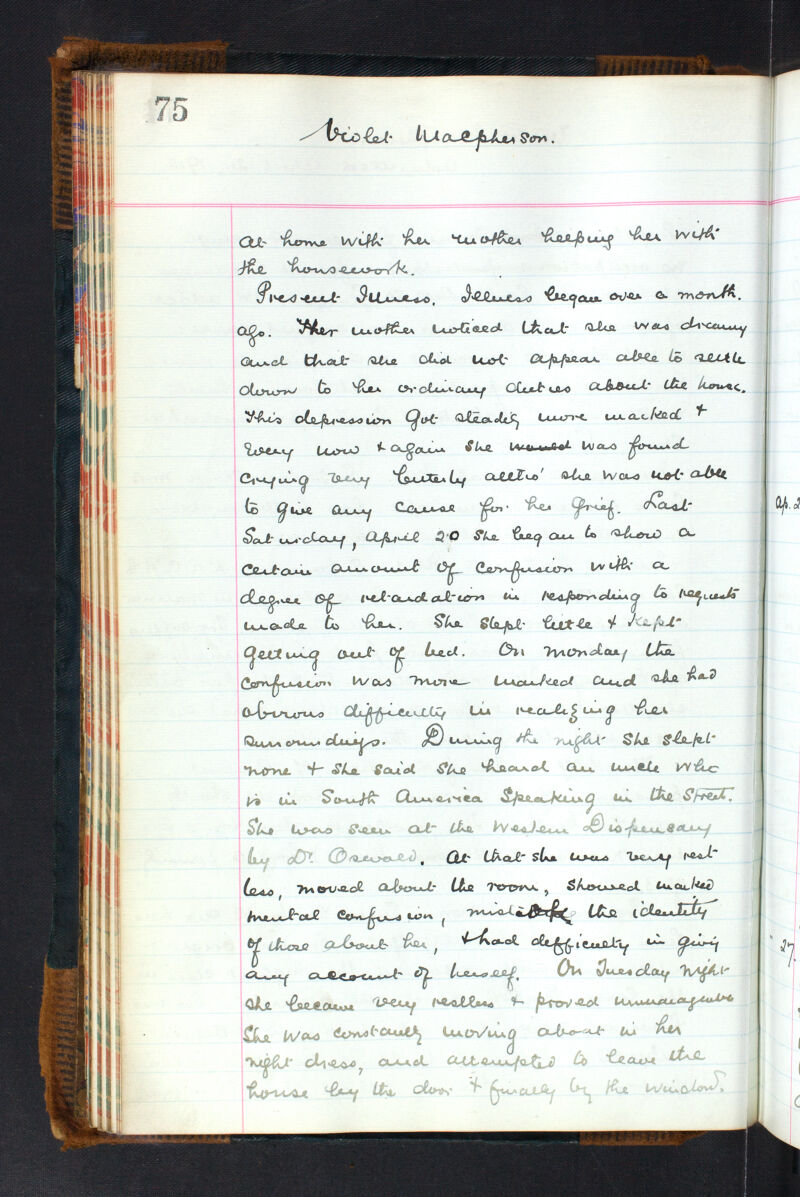 75
Violet Macpherson.
at home with her mother helping her with
the housework.
Present Illness. Illness began over a month
ago. Her mother noticed that she was dreamy
and that she did not appear able to settle
down to her ordinary duties about the house.
This depression got steadily more marked +
every now + again she was found
crying very bitterly altho' she was not able
to give any cause for her grief. Last
Saturday, April 20 she began to show a
certain amount of confusion with a
degree of retardation in responding to requests
made to her. She slept little + kept
getting out of bed. On Monday the
confusion was more marked and she had
obvious difficulty in realizing her
surroundings. During the night she slept
none + she said she heard an uncle who
is in South America speaking in the street.
She was seen at the Western Dispensary
by Dr. Oswald. At that she was very rest
less, moved about the room, showed marked
mental confusion, the identity
of those about her, + had difficulty in giving
any account of herself. On Tuesday night
she became very restless + proved unmanageable
She was constantly moving about in her
night dress, and attempted to leave the
house by the door + finally by the window.
Ap. 2
27.